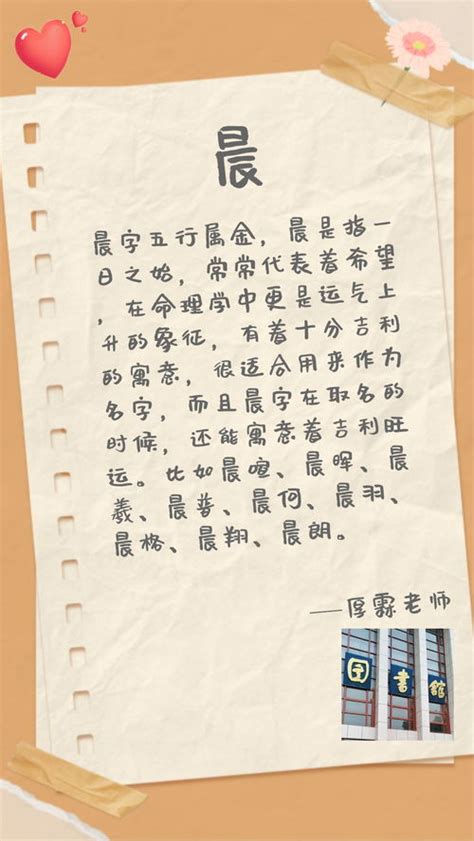 晨
晨字五行属金，晨是指一
日之始，常常代表着希望
，在命理学中更是运气上
升的象征，有着十分吉利
的寓意，很适合用来作为
名字，而且晨字在取名的
时候，还能寓意着吉利旺
运。比如晨喧、晨晖、晨
羲、晨普、晨何、晨羽、
晨格、晨翔、晨朗。
——厚霖老师
图書館